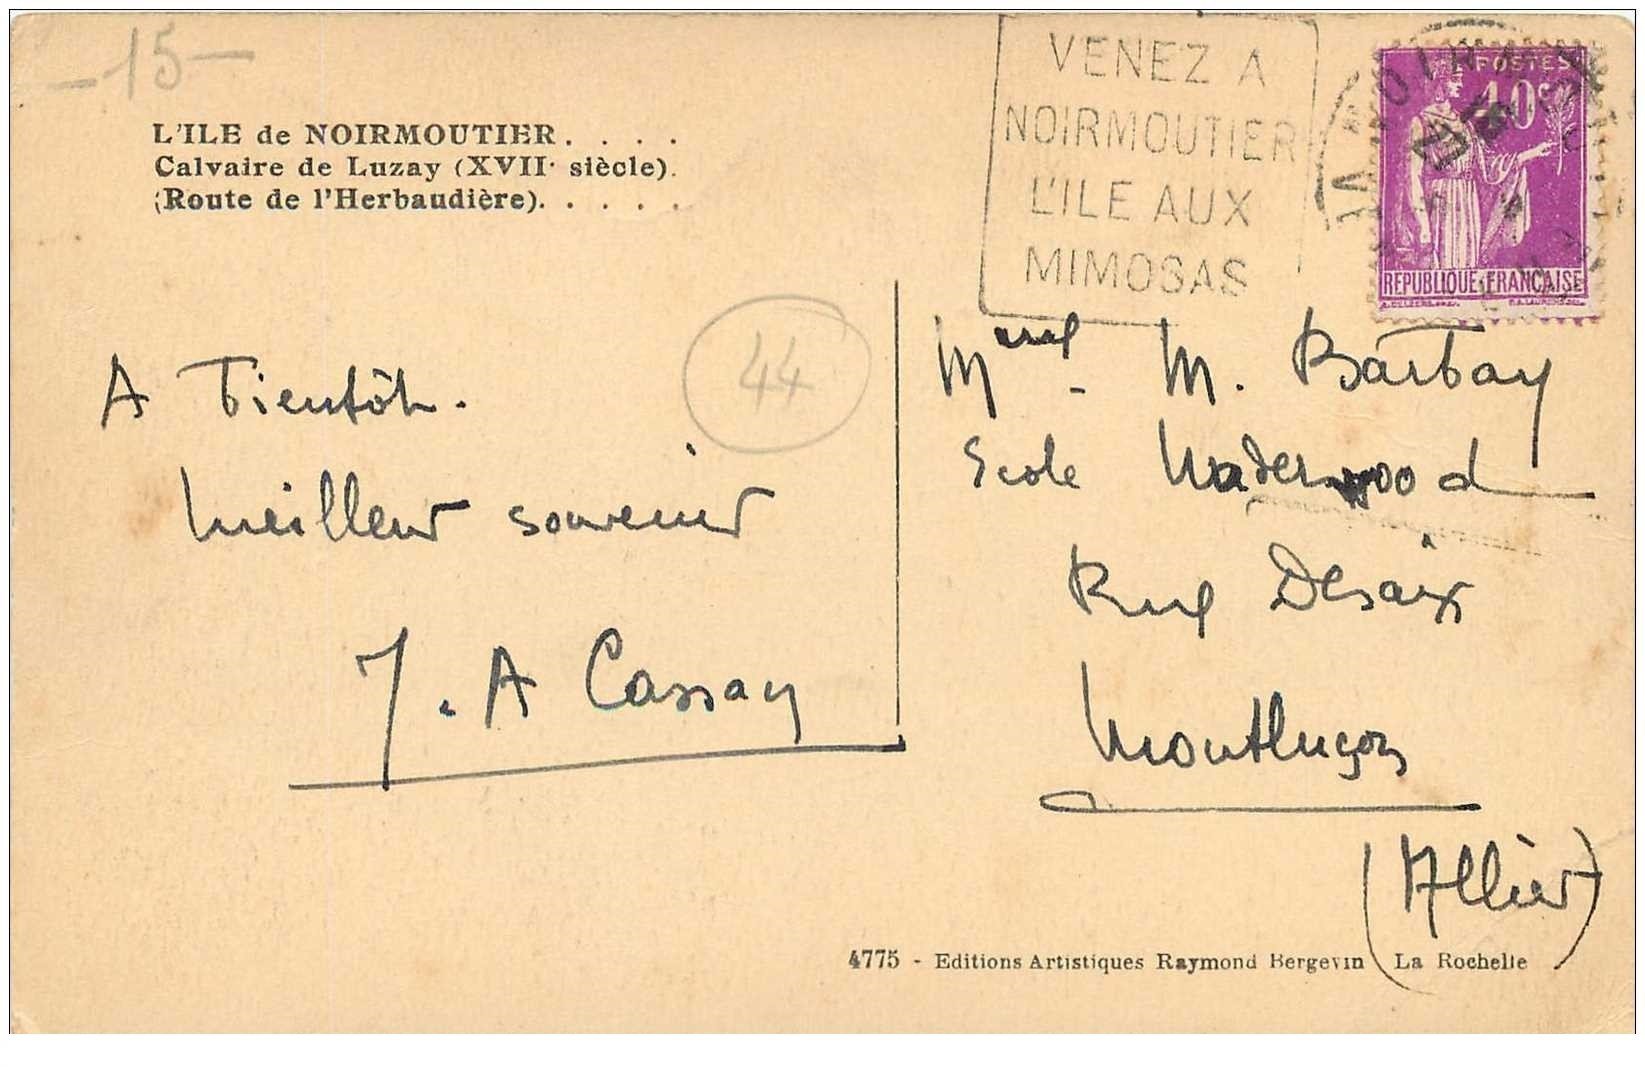 -15-
L'ILE de NOIRMOUTIER. . . .
Calvaire de Luzay (XVIIe siècle).
(Route de l'Herbaudière). . . . .
VENEZ A
NOIRMOUTIER
L'ILE AUX
MIMOSAS
POSTES
40c
REPUBLIQUE FRANÇAISE
44
A Bientôt.
Meilleur souvenir
J. A Cassan
M. Barbay
Ecole Underwood
Rue Desaix
Montluçon
(Allier)
4775 - Editions Artistiques Raymond Bergevin La Rochelle